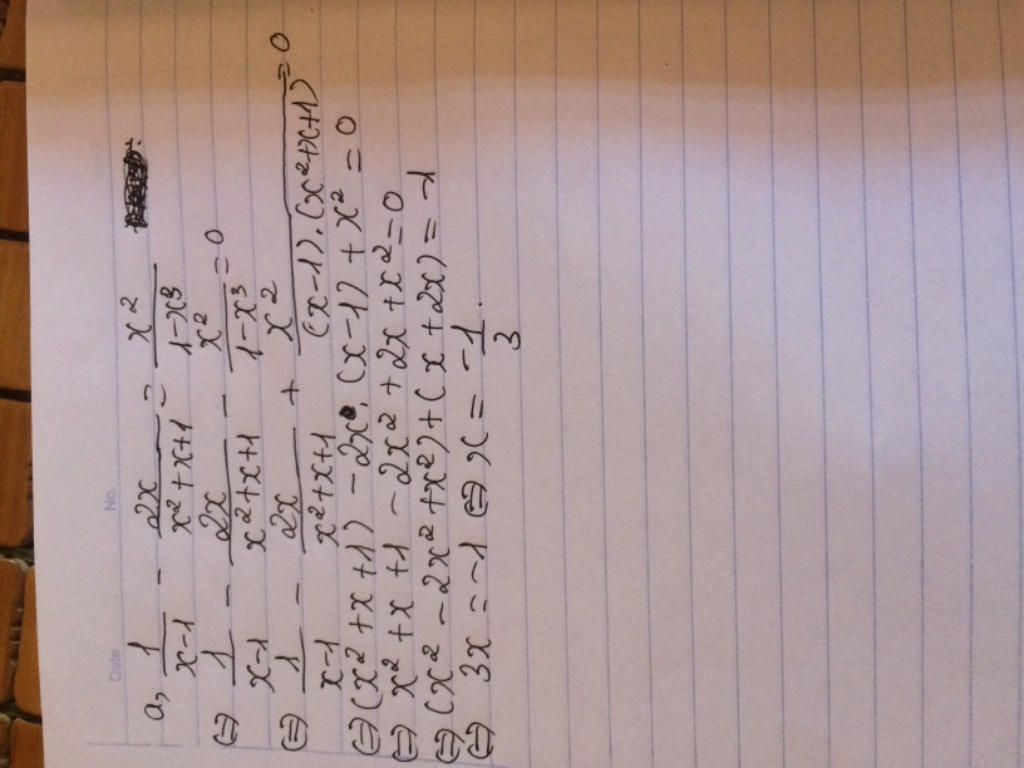 Date No.
a, 1/(x-1) - 2x/(x²+x+1) = x²/(1-x³)
⇔ 1/(x-1) - 2x/(x²+x+1) - x²/(1-x³) = 0
⇔ 1/(x-1) - 2x/(x²+x+1) + x²/((x-1).(x²+x+1)) = 0
⇔ (x²+x+1) - 2x.(x-1) + x² = 0
⇔ x²+x+1 - 2x²+2x+x² = 0
⇔ (x²-2x²+x²)+(x+2x) = -1
⇔ 3x = -1 ⇔ x = -1/3.